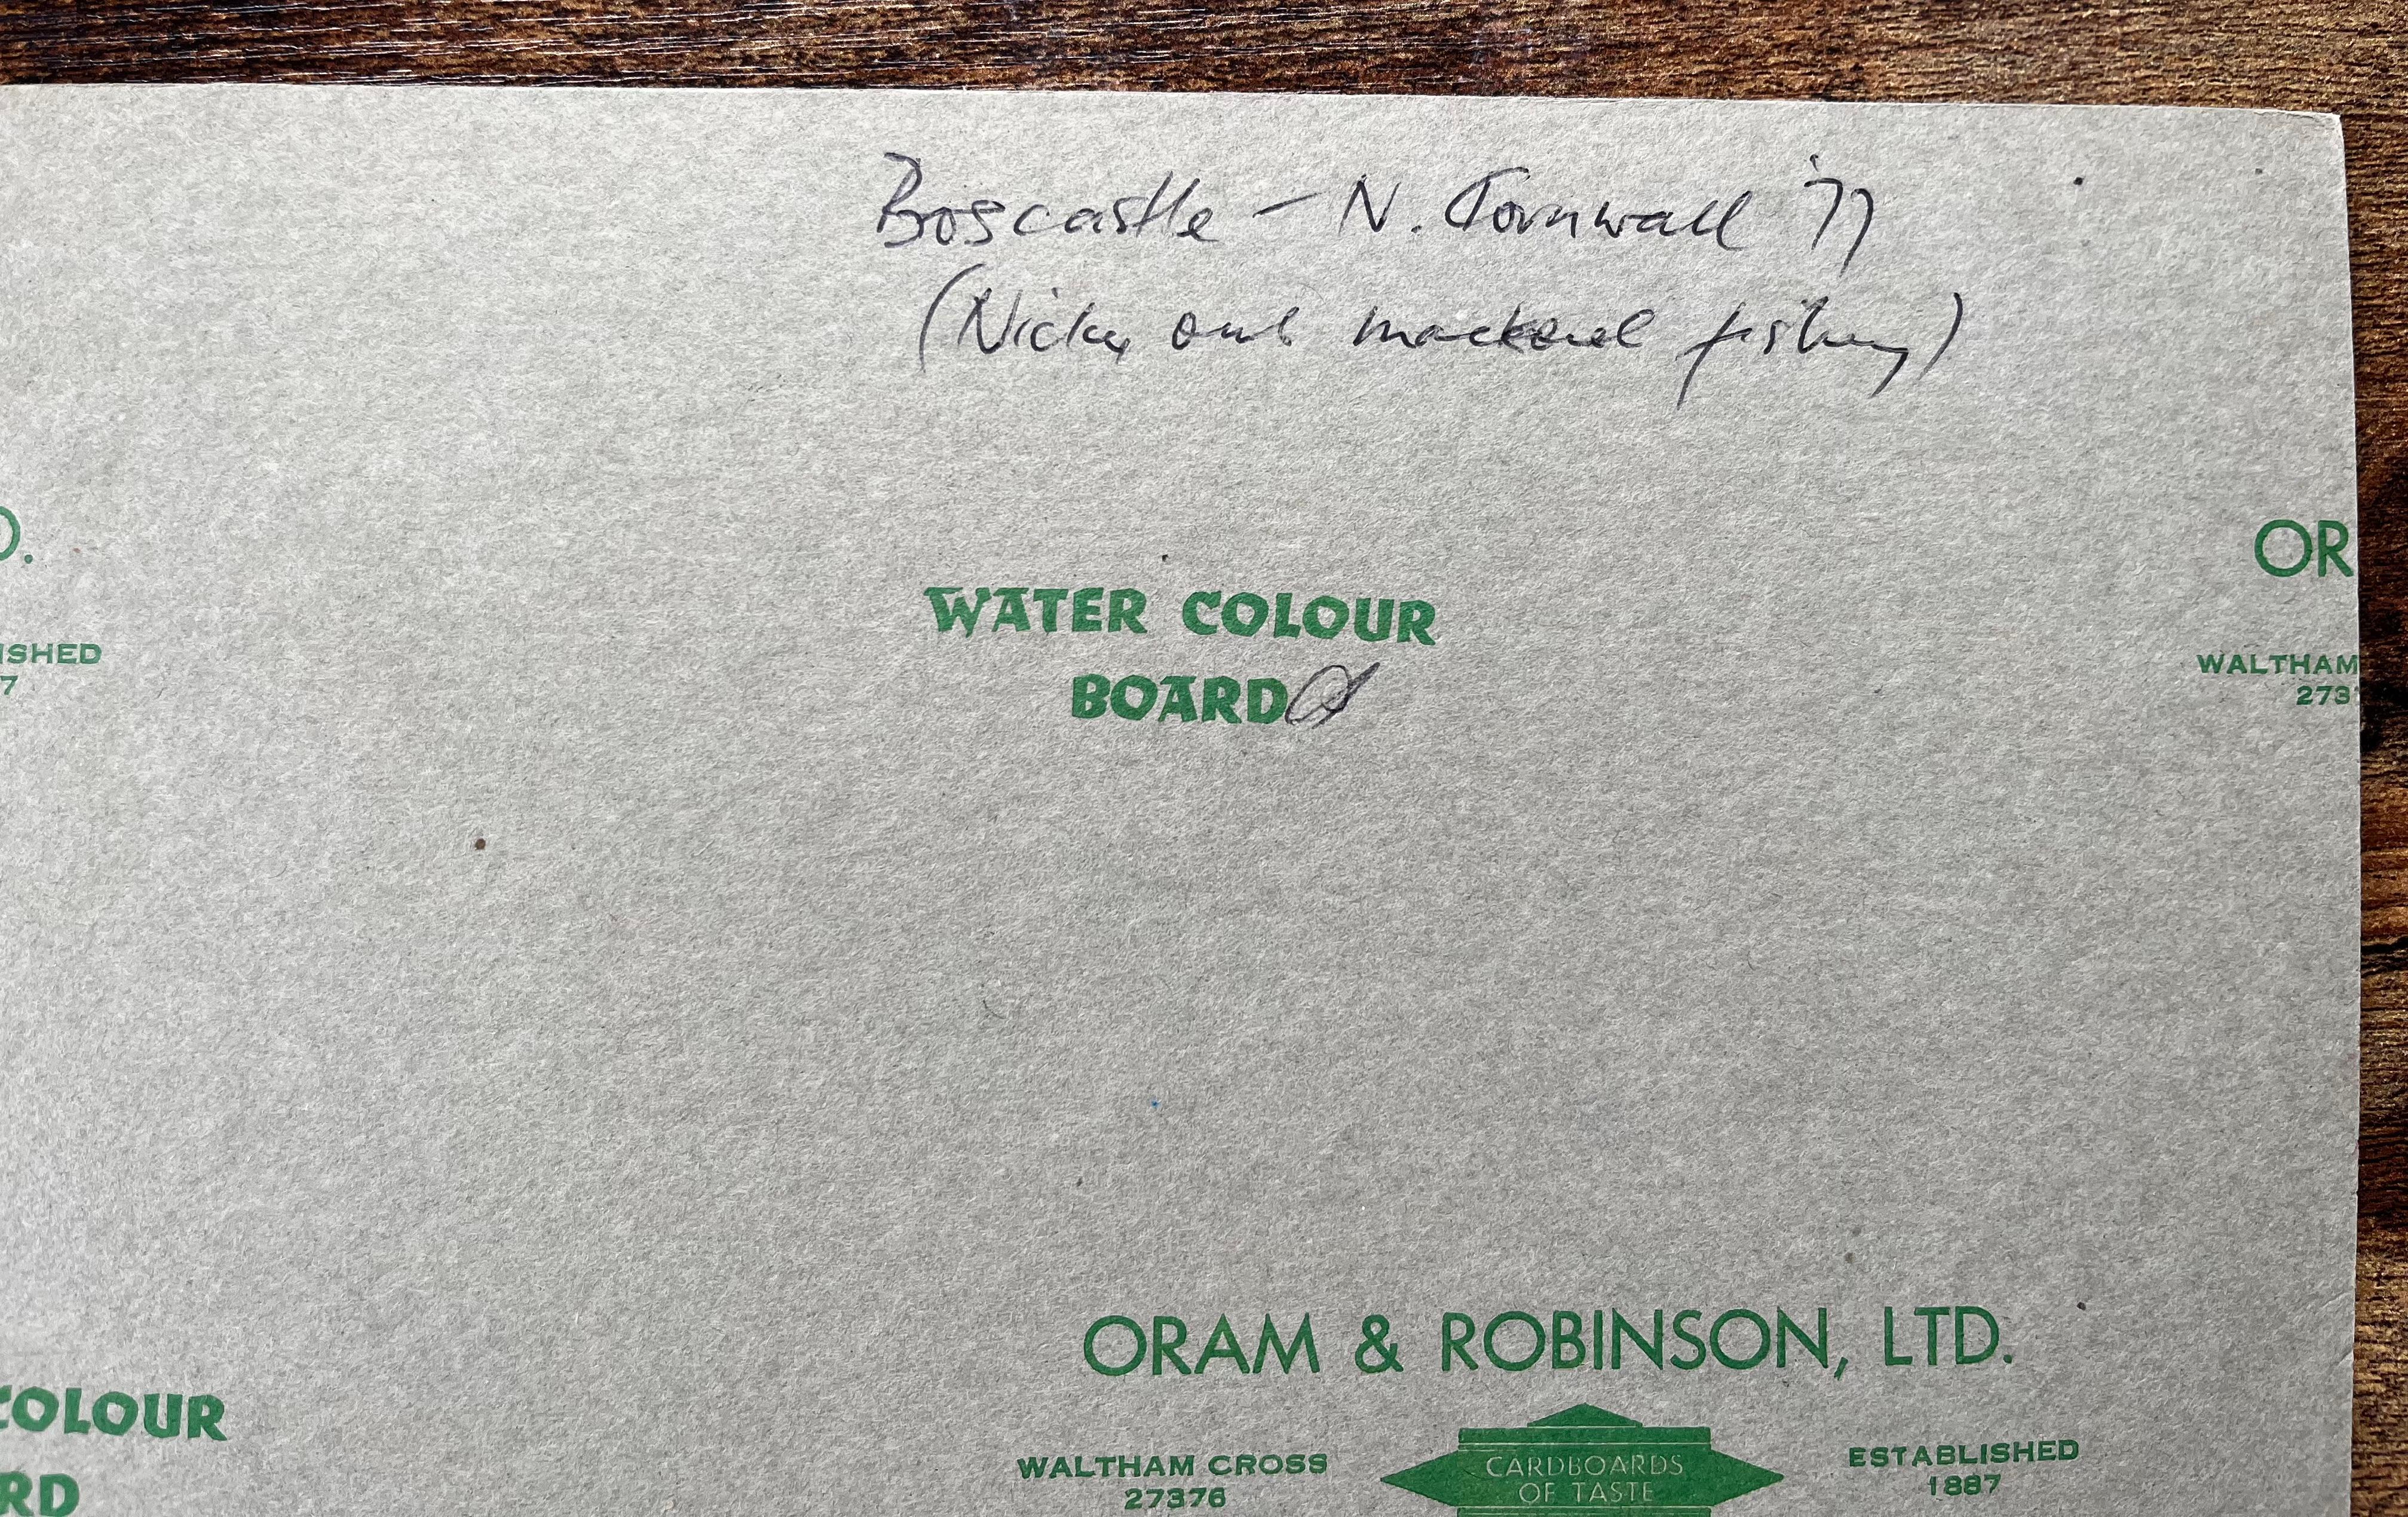 Boscastle – N. Cornwall '77
(Nicky out mackerel fishing)
D.
OR
WATER COLOUR
BOARD
ISHED
7
WALTHAM
273
ORAM & ROBINSON, LTD.
COLOUR
RD
WALTHAM CROSS
27376
CARDBOARDS
OF TASTE
ESTABLISHED
1887